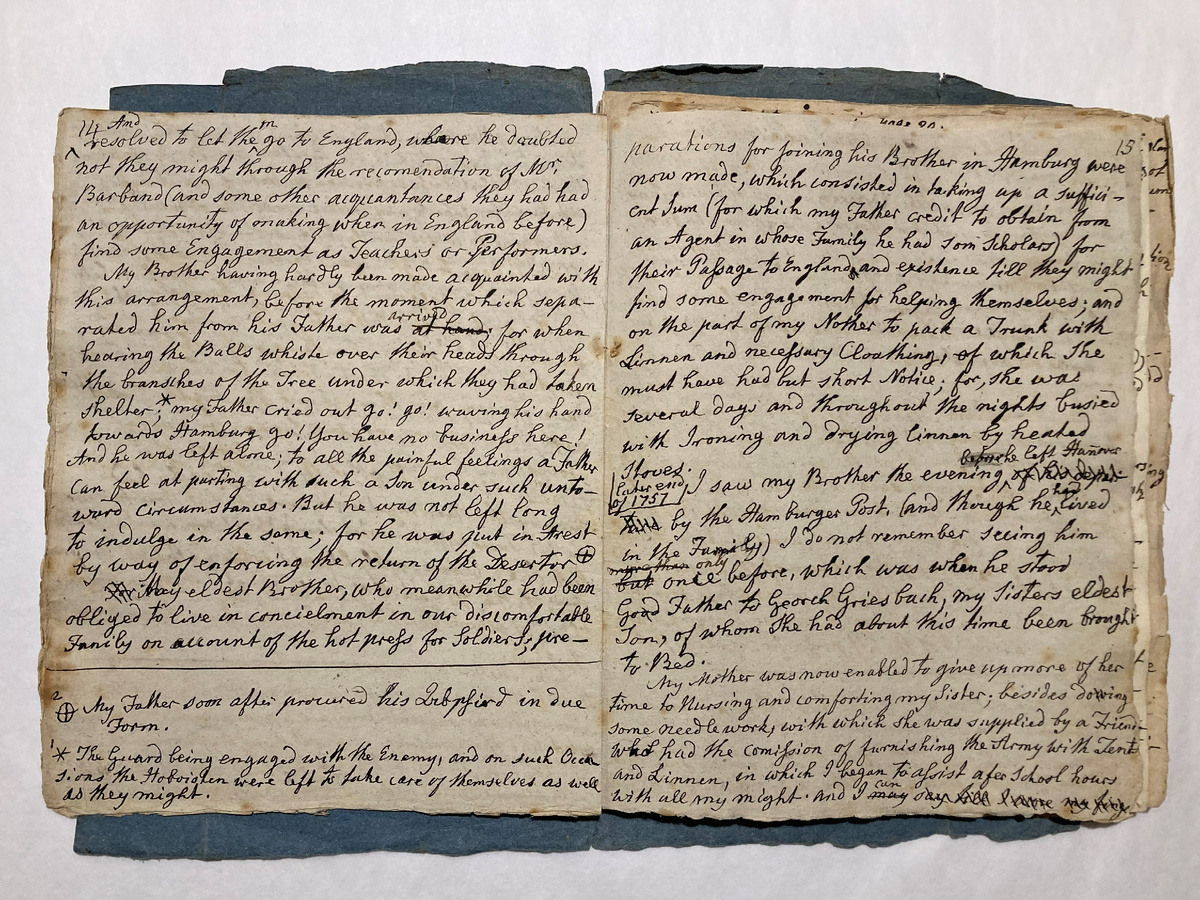 14 And
resolved to let the m go to England, where he doubted
not they might through the recomendation of Mr.
Barband (and some other acquantances they had had
an opportunity of making when in England before)
find some Engagement as Teachers or Performers.
My Brother having hardly been made acquainted with
this arrangement, before the moment which sepa-
rated him from his Father was at hand; arrived for when
hearing the Balls whiste over their heads through
the bransches of the Tree under which they had taken
shelter;* my Father cried out go! go! waving his hand
towards Hamburg go! You have no business here!
And he was left alone, to all the painful feelings a Father
can feel at parting with such a Son under such unto-
ward circumstances. But he was not left long
to indulge in the same; for he was put in Arest
by way of enforcing the return of the Desertor ⊕
My eldest Brother, who meanwhile had been
obliged to live in concielment in our discomfortable
Family on account of the hot press for Soldiers; pre-
2
⊕ My Father soon after procured his in due
Form.
1
* The Guard being engaged with the Enemy, and on such Occa
sions the Hoboisten were left to take care of themselves as well
as they might.
15
parations for joining his Brother in Hamburg were
now made, which consisted in taking up a suffici-
ent Sum (for which my Father credit to obtain from
an Agent in whose Family he had som Scholars) for
their Passage to England, and existence till they might
find some engagement for helping themselves; and
on the part of my Mother to pack a Trunk with
Linnen and necessary Cloathing, of which She
must have had but short Notice; for, she was
several days and throughout the nights busied
with Ironing and drying Linnen by heated
Stoves.
before he left Hanover
later end
of 1757
I saw my Brother the evening of his depar
by the Hamburger Post, (and though he had lived
in the Family) I do not remember seeing him
more than only
but once before, which was when he stood
God Father to Georch Griesbach, my Sisters eldest
Son, of whom She had about this time been brought
to Bed.
My Mother was now enabled to give up more of her
time to Nursing and comforting my Sister; besides doing
some needle work, with which she was supplied by a Frien-
who had the comission of furnishing the Army with Tents
and Linnen, in which I began to assist afer School hours
with all my might. And I may can say